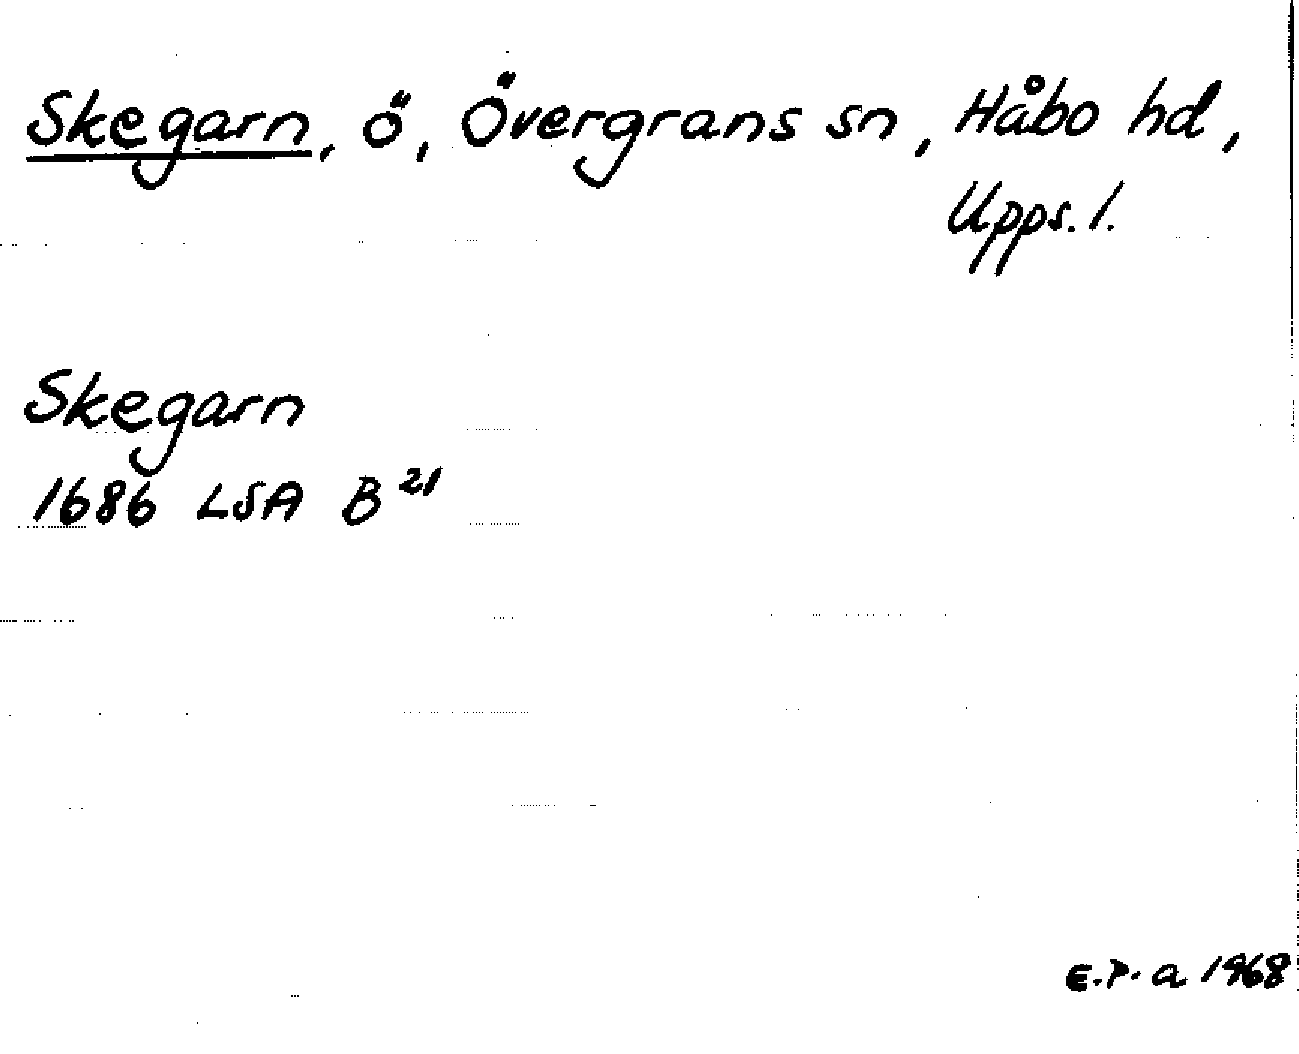 Skegarn, ö, Övergrans sn, Håbo hd,
Upps. l.
Skegarn
1686 LSA B 21
E.P. a 1968